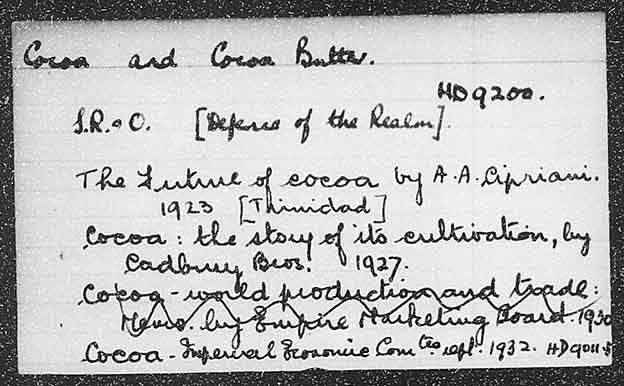 Cocoa and Cocoa Butter.
HD9200.
S.R. & O. [Defence of the Realm].
The Future of cocoa by A.A. Cipriani.
1923 [Trinidad]
Cocoa: the story of its cultivation, by
Cadbury Bros. 1927.
Cocoa - world production and trade:
Memo. by Empire Marketing Board. 1930
Cocoa - Imperial Economic Comtee rept. 1932. HD9011.5